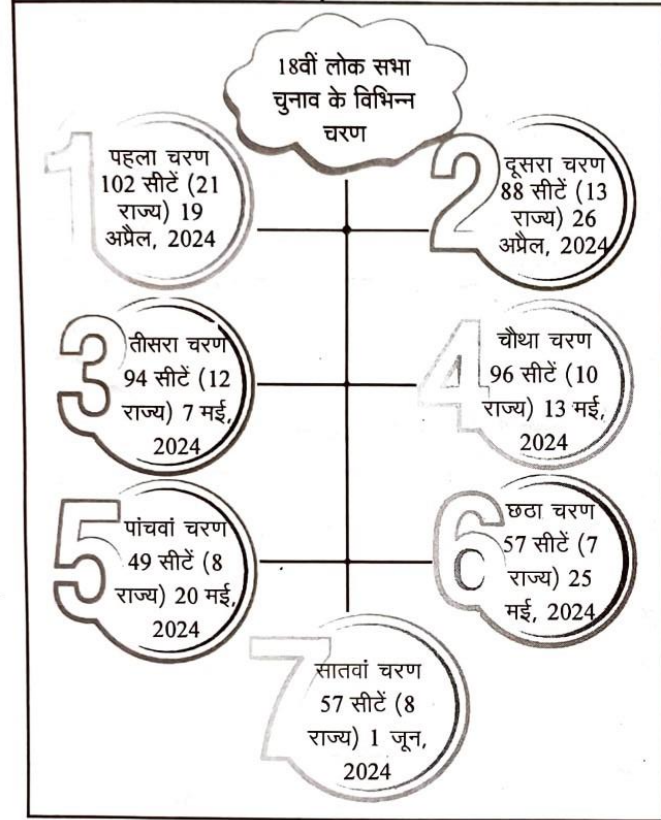 18वीं लोक सभा
चुनाव के विभिन्न
चरण
1
पहला चरण
102 सीटें (21
राज्य) 19
अप्रैल, 2024
2
दूसरा चरण
88 सीटें (13
राज्य) 26
अप्रैल, 2024
3
तीसरा चरण
94 सीटें (12
राज्य) 7 मई,
2024
4
चौथा चरण
96 सीटें (10
राज्य) 13 मई,
2024
5
पांचवां चरण
49 सीटें (8
राज्य) 20 मई,
2024
6
छठा चरण
57 सीटें (7
राज्य) 25
मई, 2024
7
सातवां चरण
57 सीटें (8
राज्य) 1 जून,
2024